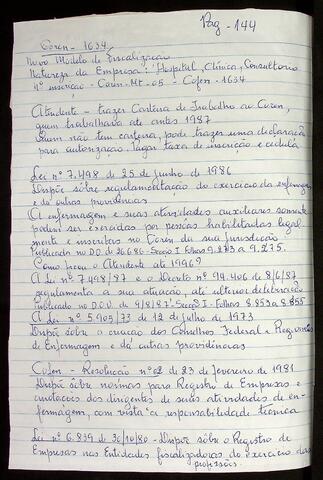 Pag - 144
Coren - 1634
Novo Modelo de Fiscalização
Natureza da Empresa: Hospital, Clínica, Consultorio
nº inscrição - Coren - MT - 05 - Cofen - 1634
Atendente - trazer Carteira de Trabalho ao Coren,
quem trabalhava até antes 1987
Quem não tem carteira, pode trazer uma declaração
para autorização. Pagar taxa de inscrição e cédula
Lei nº 7.498 de 25 de junho de 1986
Dispõe sôbre regulamentação do exercício da enfermagem
e dá outras providências
A enfermagem e suas atividades auxiliares somente
podem ser exercidas por pessoas habilitadas legal
mente e inscritas no Coren da sua jurisdição
Publicado no D.O. de 26.6.86 - Secção I - Folhas 9.273 a 9.275.
Como ficou o Atendente até 1996?
A Lei nº 7.498/87 e o Decreto nº 94.406 de 8/6/87
regulamenta a sua atuação, até ulterior deliberação
Publicado no D.O.U. de 9/8/87 - Secção I - Folhas 8.853 a 8.855
A Lei nº 5.905/73 de 12 de julho de 1973
Dispõe sôbre a criação dos Conselhos Federal e Regionais
de Enfermagem e dá outras providências
Cofen - Resolução nº 02 de 23 de fevereiro de 1981
Dispõe sôbre normas para Registro de Empresas e
anotações dos dirigentes de suas atividades de en-
fermagem, com vista a responsabilidade técnica
Lei nº 6.839 de 30/10/80 - Dispõe sôbre o Registro de
Empresas nas Entidades fiscalizadoras do exercício das
profissões.